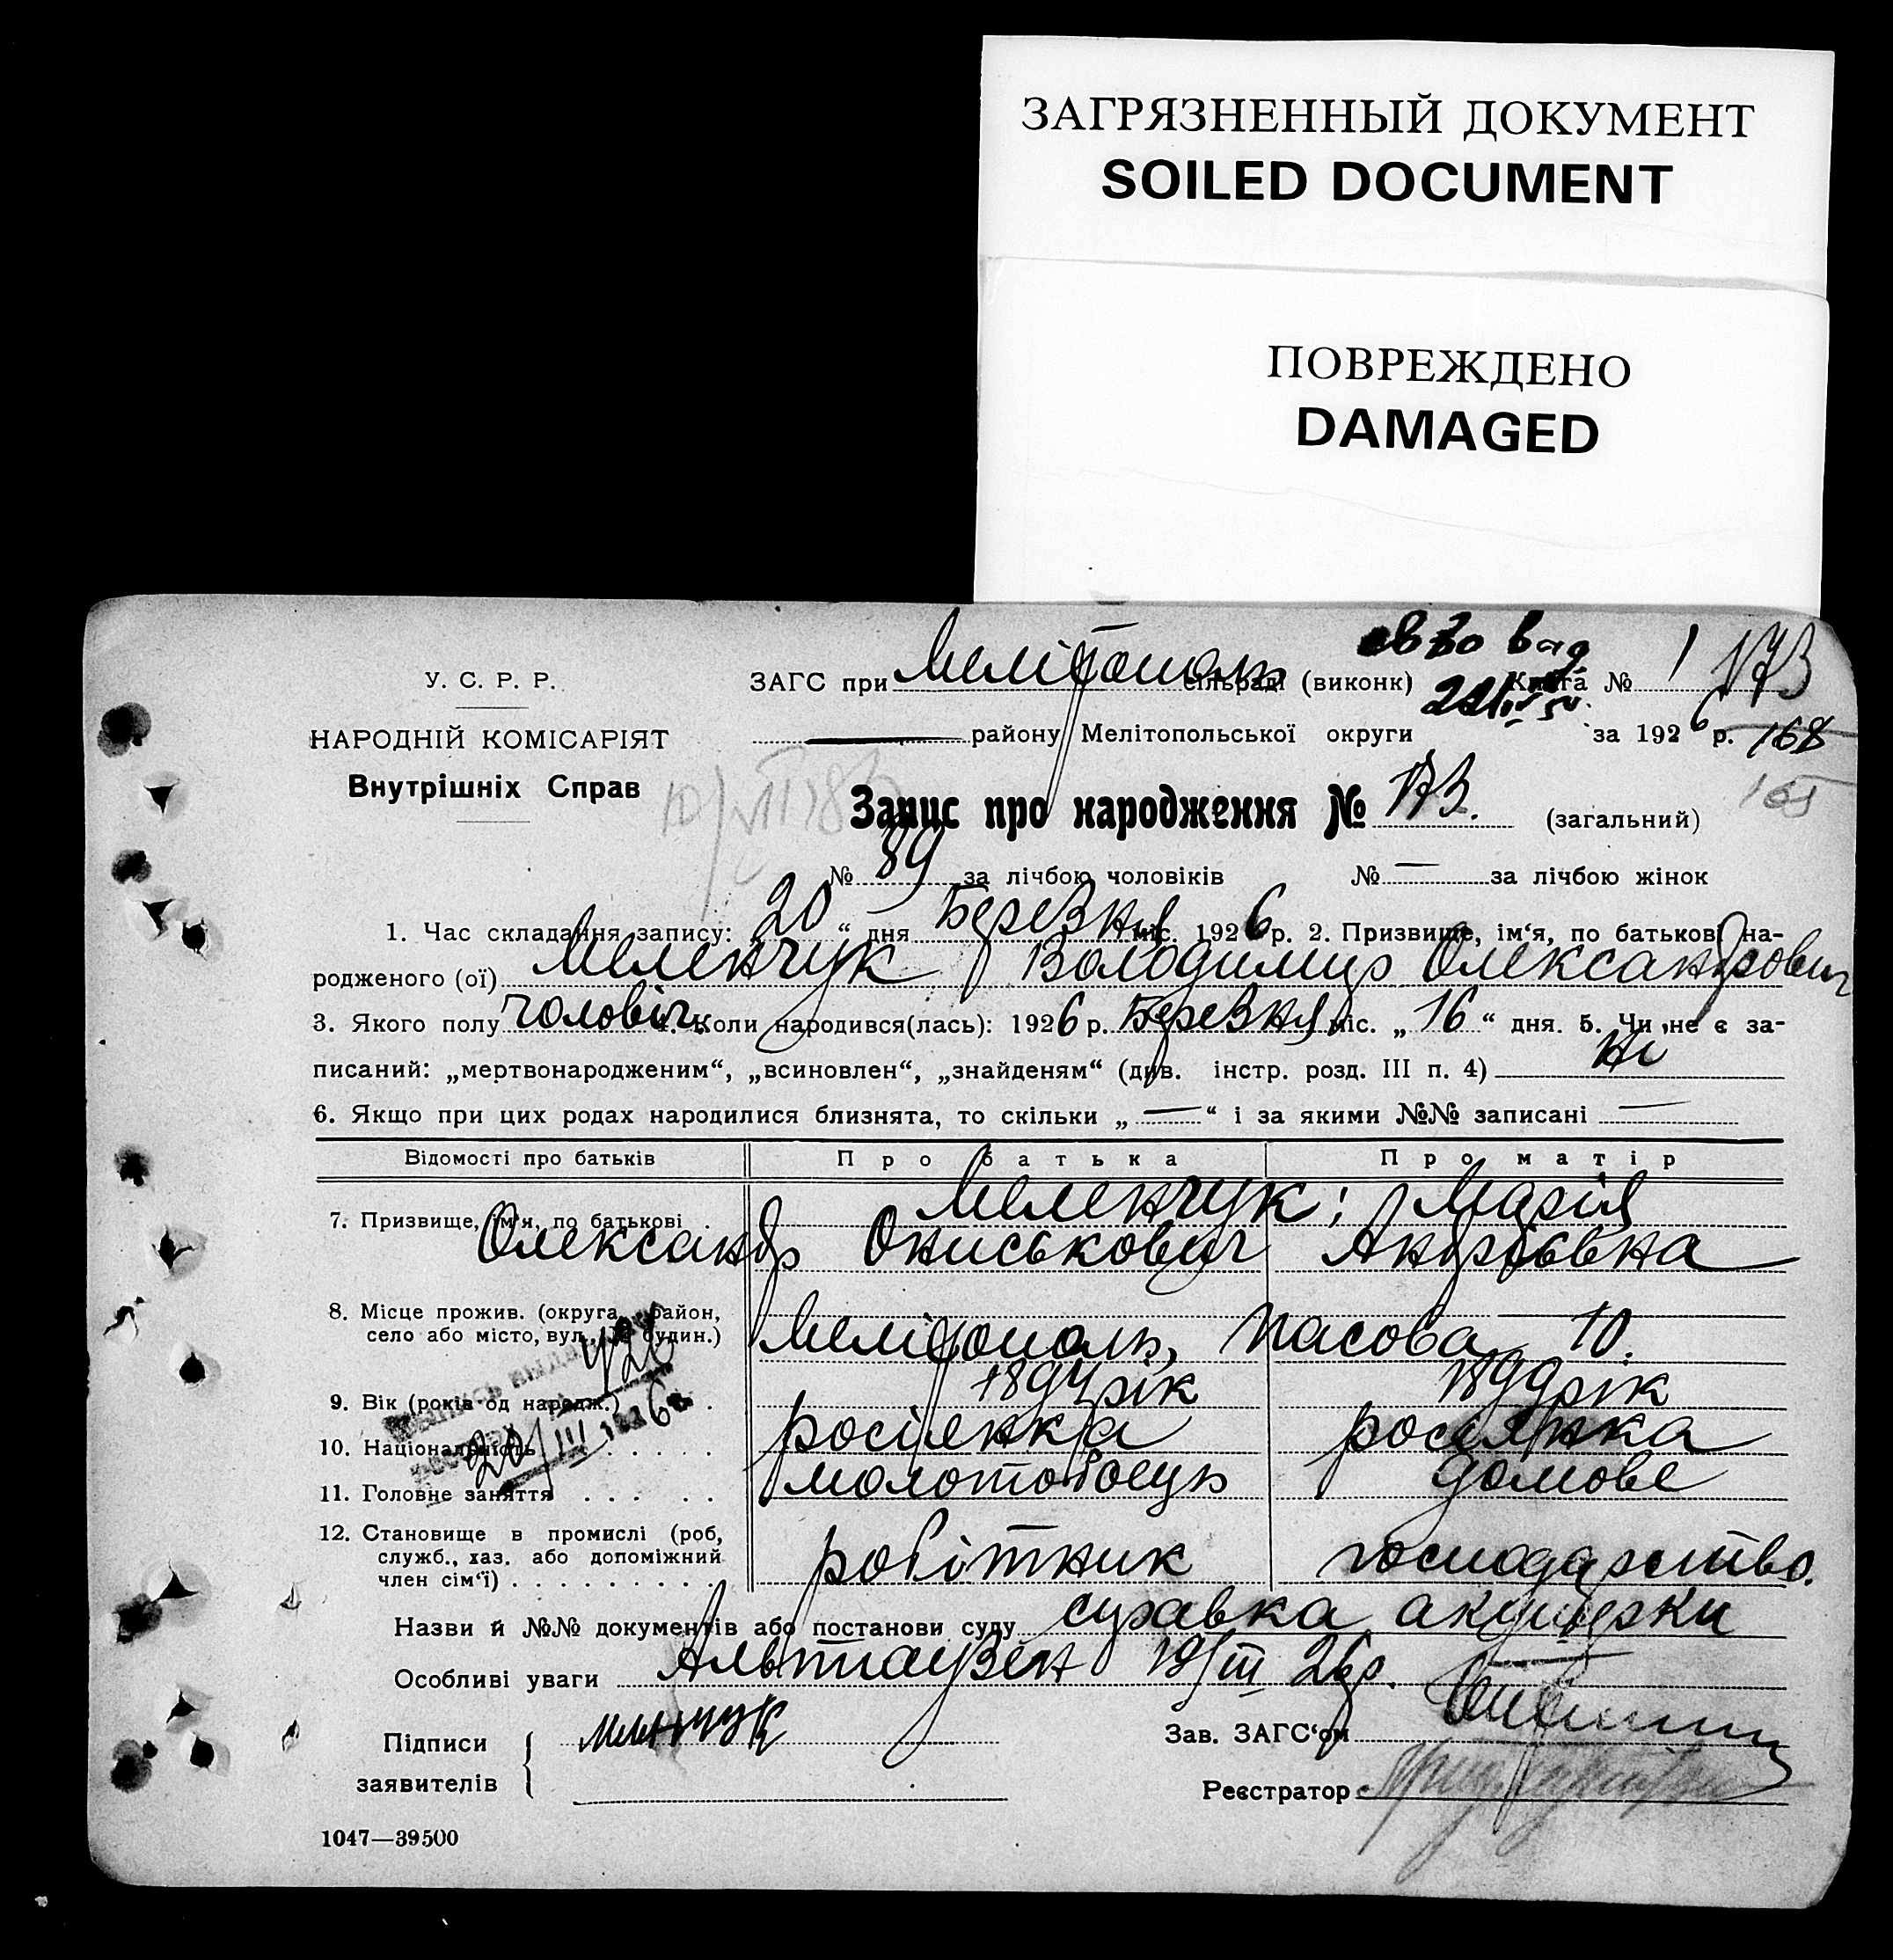 ЗАГРЯЗНЕННЫЙ ДОКУМЕНТ
SOILED DOCUMENT
ПОВРЕЖДЕНО
DAMAGED
У. С. Р. Р.
НАРОДНІЙ КОМІСАРІЯТ
Внутрішніх Справ
ЗАГС при Мелітополь сільраді (виконк) Книга № 1 173
району Мелітопольської округи за 1926 р. 168
165
Запис про народження № 173. (загальний)
№ 89 за лічбою чоловіків № — за лічбою жінок
1. Час складання запису: 20 “ дня Березня міс. 1926 р. 2. Призвище, ім‘я, по батькові на-
родженого (ої) Меленчук Володимир Олександрович
3. Якого полу чоловіч. 4. Коли народився(лась): 1926 р. Березня міс. „ 16 “ дня. 5. Чи не є за-
писаний: „мертвонародженим“, „всиновлен“, „знайденям“ (див. інстр. розд. III п. 4) ні
6. Якщо при цих родах народилися близнята, то скільки „ — “ і за якими №№ записані —
Відомості про батьків Про батька Про матір
7. Призвище, ім‘я, по батькові . Меленчук; Марія
Олександр Ониськович Андріївна
8. Місце прожив. (округа, район,
село або місто, вул., № будин.) Мелітополь, Пасова 10.
9. Вік (років од народж.) . 1894 рік 1899 рік
10. Національність . . . . . росіянка росіянка
11. Головне заняття . . . . . молотобоець домове
12. Становище в промислі (роб,
служб., хаз. або допоміжний
член сім‘ї) . . . . . . . . . робітник господарство.
Назви й №№ документів або постанови суду справка акушерки
Особливі уваги Альтгаузен 19/III 26 р.
Підписи
заявителів
Меленчук
Зав. ЗАГС‘ом
Реєстратор
1047—39500